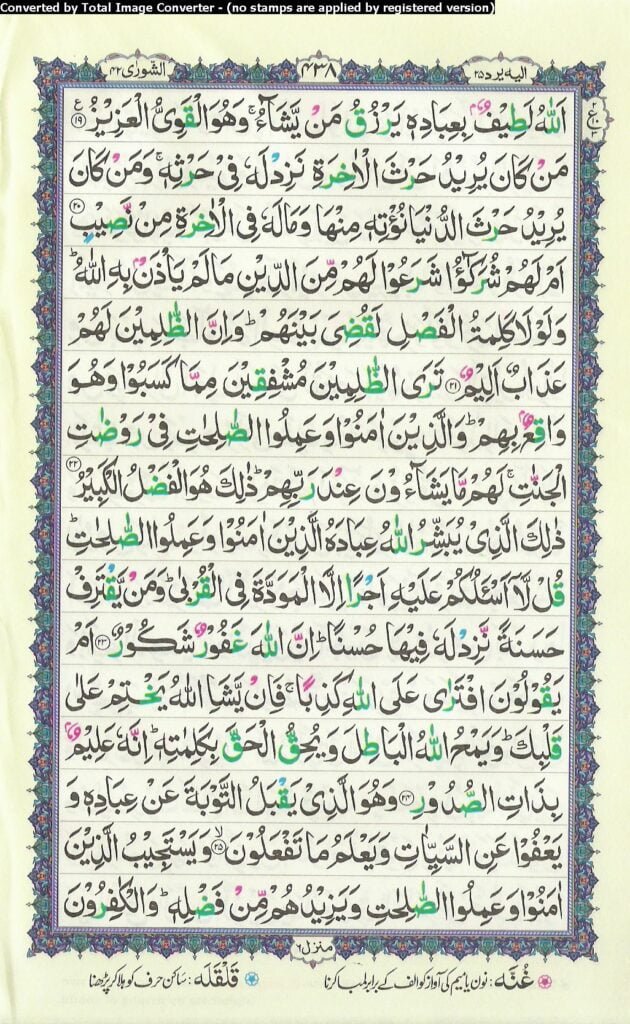 Converted by Total Image Converter - (no stamps are applied by registered version)
الشورى ۴۲
۴۳۸
الیه یرد ۲۵
اَللّٰهُ لَطِیْفٌۢ بِعِبَادِهٖ یَرْزُقُ مَنْ یَّشَآءُ ۚ وَهُوَ الْقَوِیُّ الْعَزِیْزُ ۱۹
مَنْ كَانَ یُرِیْدُ حَرْثَ الْاٰخِرَةِ نَزِدْ لَهٗ فِیْ حَرْثِهٖ ۚ وَمَنْ كَانَ
یُرِیْدُ حَرْثَ الدُّنْیَا نُؤْتِهٖ مِنْهَا وَمَا لَهٗ فِی الْاٰخِرَةِ مِنْ نَّصِیْبٍ ۲۰
اَمْ لَهُمْ شُرَكٰٓؤُا شَرَعُوْا لَهُمْ مِّنَ الدِّیْنِ مَا لَمْ یَاْذَنْۢ بِهِ اللّٰهُ ؕ
وَلَوْلَا كَلِمَةُ الْفَصْلِ لَقُضِیَ بَیْنَهُمْ ؕ وَاِنَّ الظّٰلِمِیْنَ لَهُمْ
عَذَابٌ اَلِیْمٌ ۲۱ تَرَی الظّٰلِمِیْنَ مُشْفِقِیْنَ مِمَّا كَسَبُوْا وَهُوَ
وَاقِعٌۢ بِهِمْ ؕ وَالَّذِیْنَ اٰمَنُوْا وَعَمِلُوا الصّٰلِحٰتِ فِیْ رَوْضٰتِ
الْجَنّٰتِ ۚ لَهُمْ مَّا یَشَآءُوْنَ عِنْدَ رَبِّهِمْ ؕ ذٰلِكَ هُوَ الْفَضْلُ الْكَبِیْرُ ۲۲
ذٰلِكَ الَّذِیْ یُبَشِّرُ اللّٰهُ عِبَادَهُ الَّذِیْنَ اٰمَنُوْا وَعَمِلُوا الصّٰلِحٰتِ ؕ
قُلْ لَّاۤ اَسْـَٔلُكُمْ عَلَیْهِ اَجْرًا اِلَّا الْمَوَدَّةَ فِی الْقُرْبٰی ؕ وَمَنْ یَّقْتَرِفْ
حَسَنَةً نَّزِدْ لَهٗ فِیْهَا حُسْنًا ؕ اِنَّ اللّٰهَ غَفُوْرٌ شَكُوْرٌ ۲۳ اَمْ
یَقُوْلُوْنَ افْتَرٰی عَلَی اللّٰهِ كَذِبًا ۚ فَاِنْ یَّشَاِ اللّٰهُ یَخْتِمْ عَلٰی
قَلْبِكَ ؕ وَیَمْحُ اللّٰهُ الْبَاطِلَ وَیُحِقُّ الْحَقَّ بِكَلِمٰتِهٖ ؕ اِنَّهٗ عَلِیْمٌۢ
بِذَاتِ الصُّدُوْرِ ۲۴ وَهُوَ الَّذِیْ یَقْبَلُ التَّوْبَةَ عَنْ عِبَادِهٖ وَ
یَعْفُوْا عَنِ السَّیِّاٰتِ وَیَعْلَمُ مَا تَفْعَلُوْنَ ۙ ۲۵ وَیَسْتَجِیْبُ الَّذِیْنَ
اٰمَنُوْا وَعَمِلُوا الصّٰلِحٰتِ وَیَزِیْدُهُمْ مِّنْ فَضْلِهٖ ؕ وَالْكٰفِرُوْنَ
منزل ۶
غُنَّه: نون یا میم کی آواز کو الف کے برابر لمبا کرنا
قَلْقَلَه: ساکن حرف کو ہلا کر پڑھنا